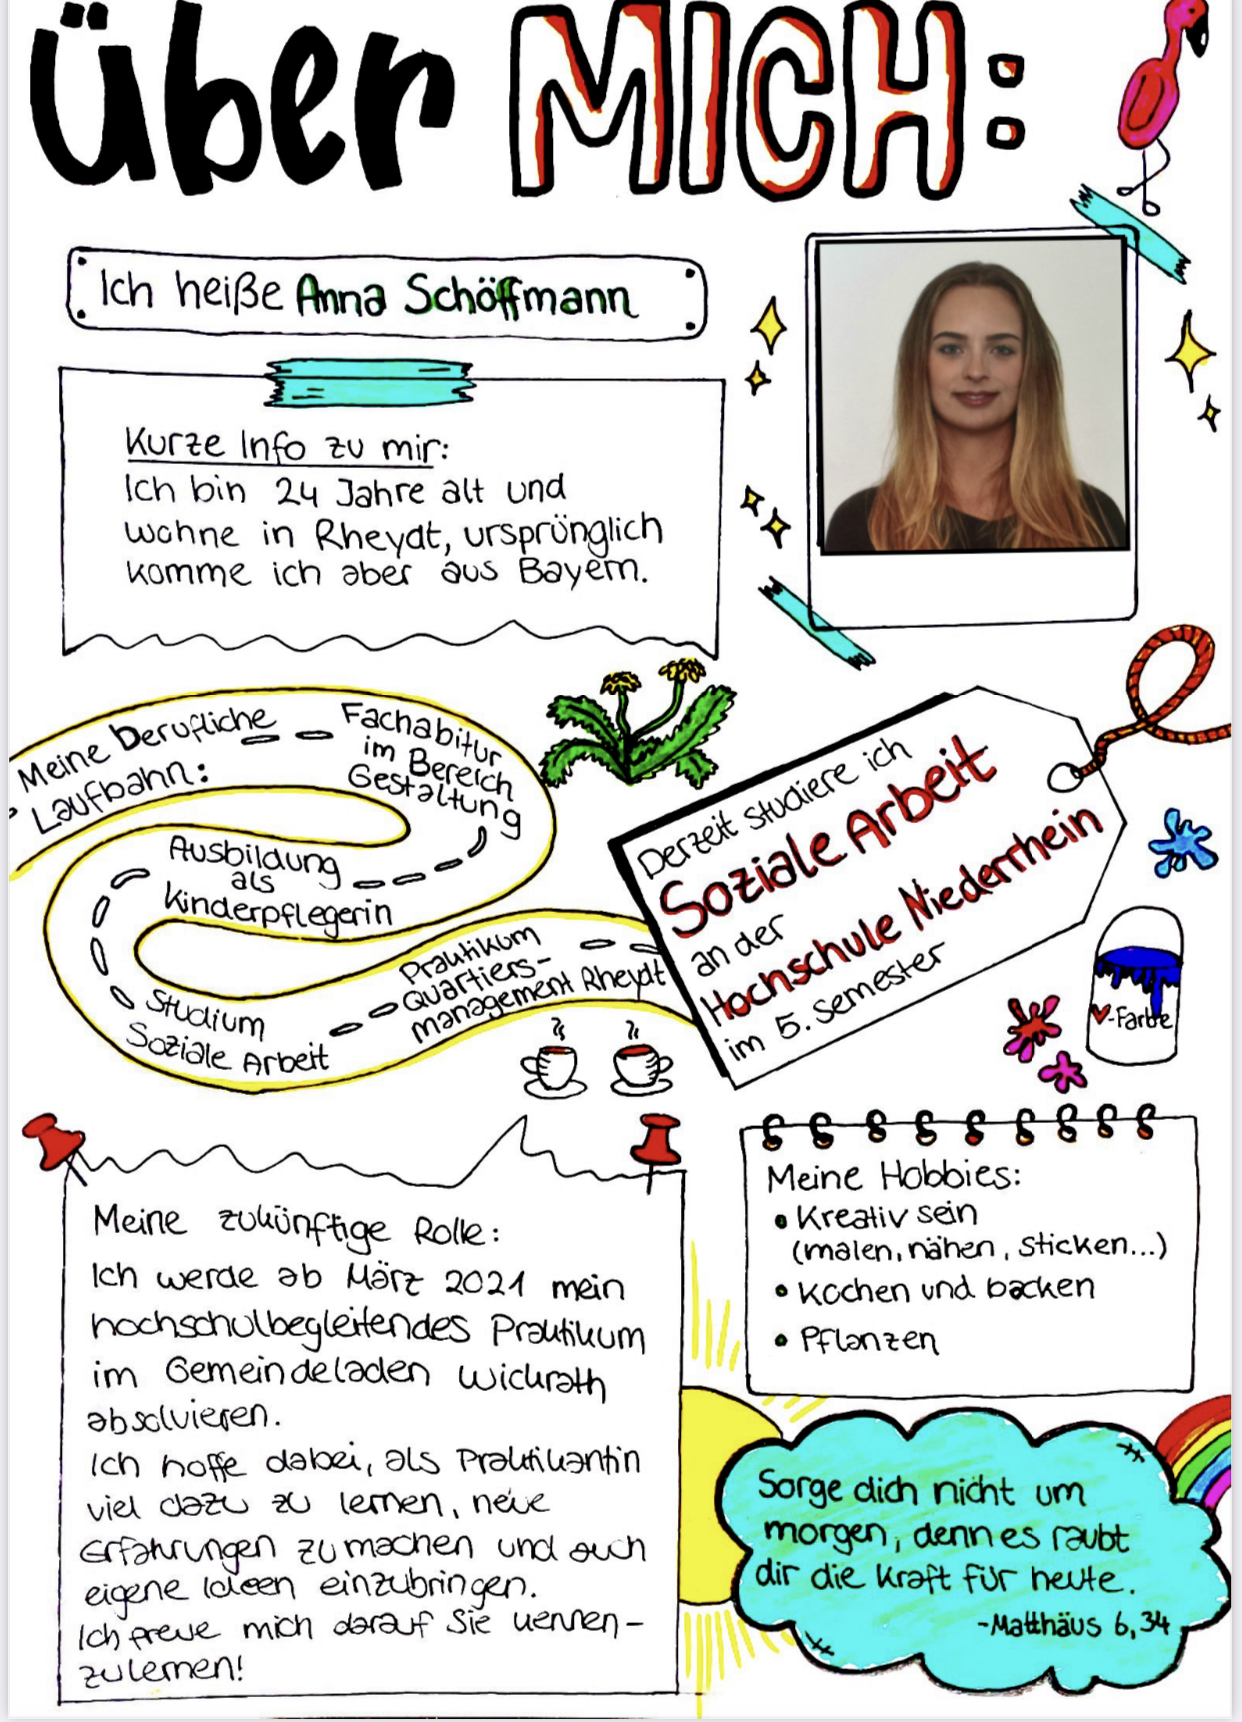 über MICH:
Ich heiße Anna Schöffmann
Kurze Info zu mir:
Ich bin 24 Jahre alt und
wohne in Rheydt, ursprünglich
komme ich aber aus Bayern.
Meine berufliche
Laufbahn:
Fachabitur
im Bereich
Gestaltung
Ausbildung
als
Kinderpflegerin
Studium
Soziale Arbeit
Praktikum
Quartiers-
management Rheydt
Derzeit studiere ich
Soziale Arbeit
an der
Hochschule Niederrhein
im 5. Semester
-Farbe
Meine zukünftige Rolle:
Ich werde ab März 2021 mein
hochschulbegleitendes Praktikum
im Gemeindeladen Wickrath
absolvieren.
Ich hoffe dabei, als Praktikantin
viel dazu zu lernen, neue
Erfahrungen zu machen und auch
eigene Ideen einzubringen.
Ich freue mich darauf Sie kennen-
zulernen!
Meine Hobbies:
• Kreativ sein
(malen, nähen, sticken...)
• Kochen und backen
• Pflanzen
Sorge dich nicht um
morgen, denn es raubt
dir die Kraft für heute.
-Matthäus 6,34